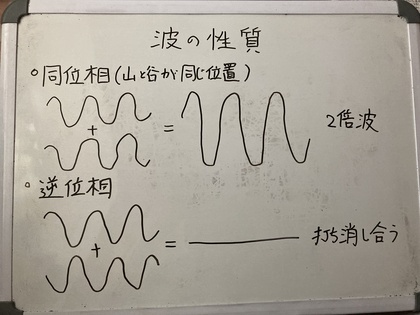 波の性質
○同位相(山と谷が同じ位置)
+ = 2倍波
○逆位相
+ = 打ち消し合う